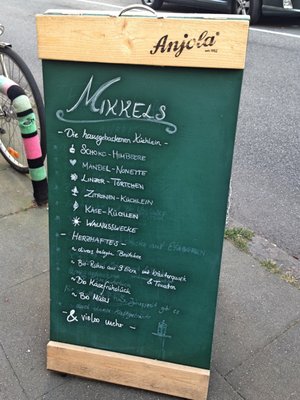 Anjola
MIKKELS
- Die hausgebackenen Küchlein -
SCHOKO-HIMBEERE
MANDEL-NONETTE
LINZER-TÖRTCHEN
ZITRONEN-KÜCHLEIN
KÄSE-KÜCHLEIN
WALNUSSWECKE
- HERZHAFTES -
~ etwas belegtes Brötchen
~ Bio-Rührei aus 3 Eiern mit Kräuterquark
& Tomaten
~ Das Käsefrühstück
~ Bio Müsli
- & vieles mehr -